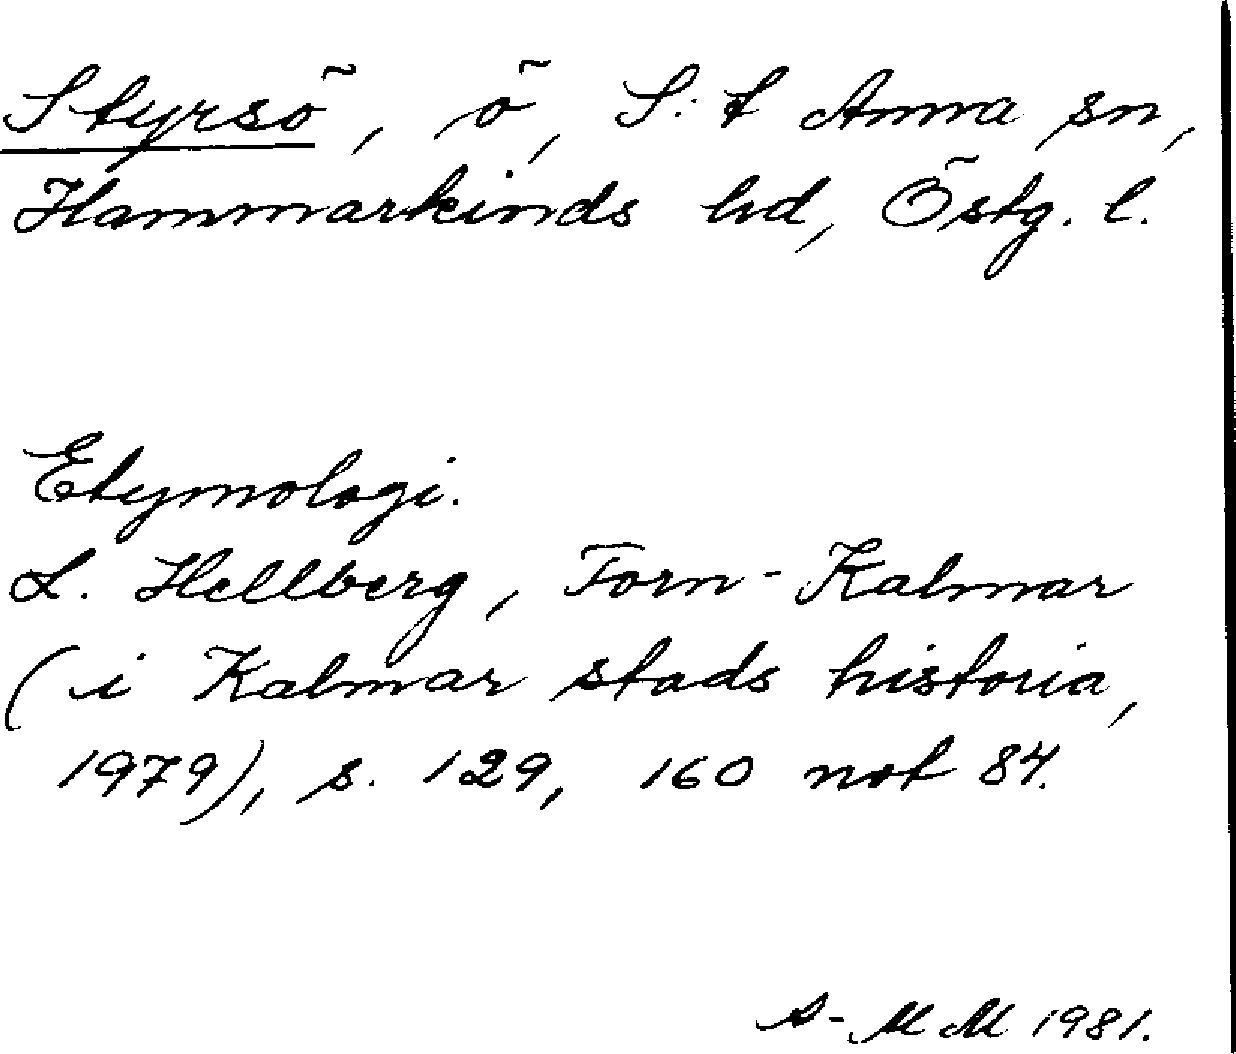 Styrsö, ö, S:t Anna sn,
Hammarkinds hd, Östg. l.
Etymologi.
L. Hellberg, Forn-Kalmar
(i Kalmar stads historia,
1979), s. 129, 160 not 84.
A-MM 1981.